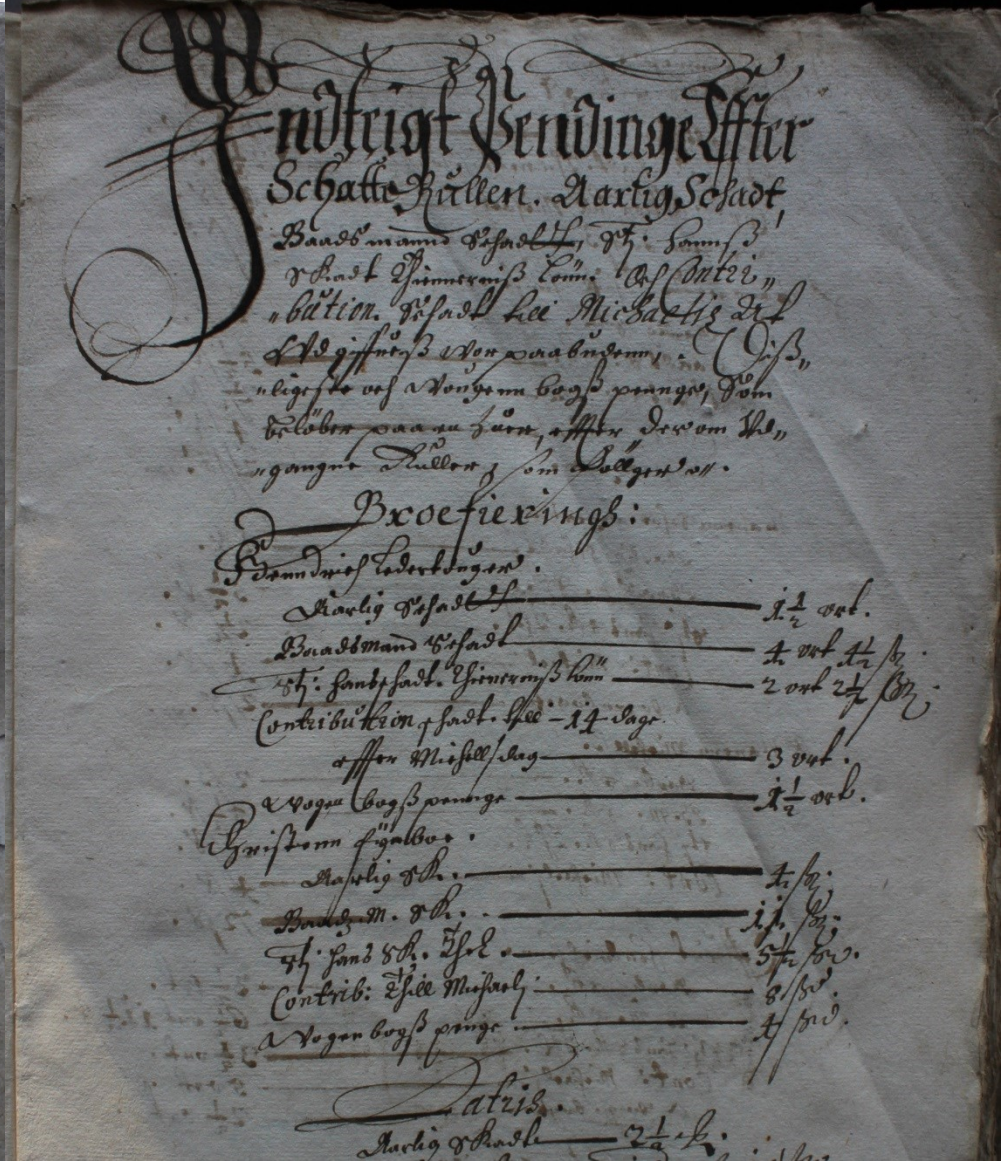 Indteigt Pendinge Effter
Schatte Rullen. Aarlig Schadt,
Baadsmannd Schadt, Stj: Hannß
Skadt Thiennerniß Lönn: Och Contri„
„bution. Schadt till Michaelis Att
Vdgiffueß wor paabudenn, . Diß„
„ligeste och Wougenn bogß penge, Som
belöber paa en huer, effter derom Vd„
„gangne Ruller, som Föllger.
Broefierings:
Henndrich
Aarlig Schadt 1½ ort.
Baadsmand Schadt 4 ort 4½ ß
Stj: hanß schadt. Thienerniß lönn 2 ort 2½ ß
Contribution schadt. till – 14 dage
effter Michellsdag 3 ort.
Wogen bogß pennge 1½ ort.
Christenn
Aarlig Sk. 4 ß.
Baadz. M. Sk. 11 ß.
Stj hans Sk. 5½ ß.
Contrib: Thill Michaelj 8 ß.
Wogen bogß penge 4 ß.
Latris.
Aarlig Skadt 2½ ß.